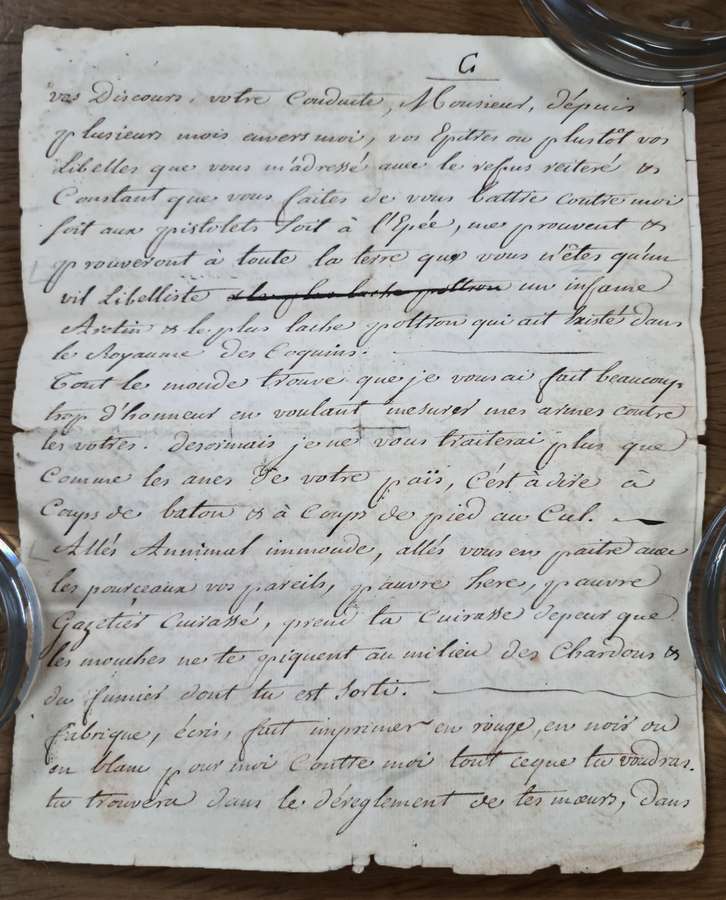 G
vos Discours, votre Conduite, Monsieur, dépuis
plusieurs mois envers moi, vos Epitres ou plustôt vos
Libelles que vous m'adressé avec le refus reiteré &
Constant que vous faites de vous battre contre moi
soit aux pistolets soit à l'Epée, me prouvent &
prouveront à toute la terre que vous n'êtes qu'un
vil Libelliste le plus lache poltron un infame
Aretin & le plus lache poltron qui ait existé dans
le Royaume des Coquins.
Tout le monde trouve que je vous ai fait beaucoup
trop d'honneur en voulant mesurer mes armes contre
les votres. desormais je ne vous traiterai plus que
comme les anes de votre païs, c'est à dire à
Coups de baton & à Coups de pied au Cul.
Allés Annimal immonde, allés vous en paitre avec
les pourceaux vos pareils, pauvre here, pauvre
Gazetier Cuirassé, prend ta Cuirasse depeur que
les mouches ne te piquent au milieu des Chardons &
du fumier dont tu est sorti.
fabrique, écris, fait imprimer en rouge, en noir ou
en blanc pour moi Contre moi tout ceque tu voudras.
tu trouvera dans le déreglement de tes mœurs, dans